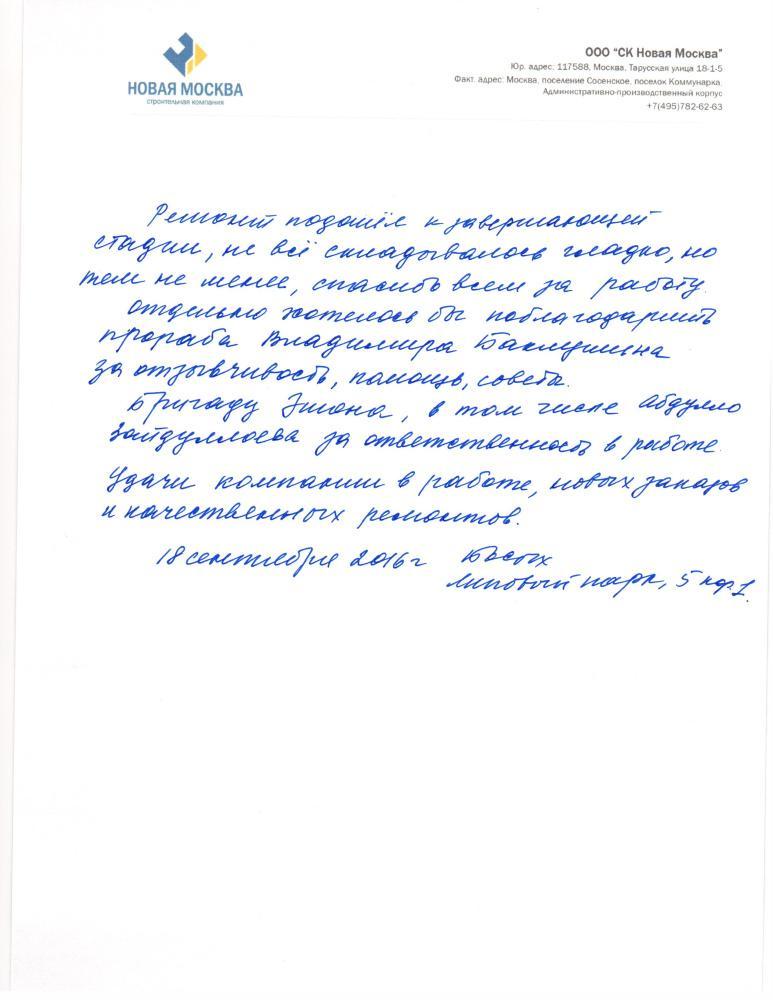 НОВАЯ МОСКВА
строительная компания
ООО "СК Новая Москва"
Юр. адрес: 117588, Москва, Тарусская улица 18-1-5
Факт. адрес: Москва, поселение Сосенское, поселок Коммунарка,
Административно-производственный корпус
+7(495)782-62-63
Ремонт подошёл к завершающей
стадии, не всё складывалось гладко, но
тем не менее, спасибо всем за работу.
Отдельно хотелось бы поблагодарить
прораба Владимира Баклушина
за отзывчивость, помощь, советы.
Бригаду Эшона, в том числе Абдулло
Зайдуллоева за ответственность в работе.
Удачи компании в работе, новых заказов
и качественных ремонтов.
18 сентября 2016 г
Липовый парк, 5 кор. 1.